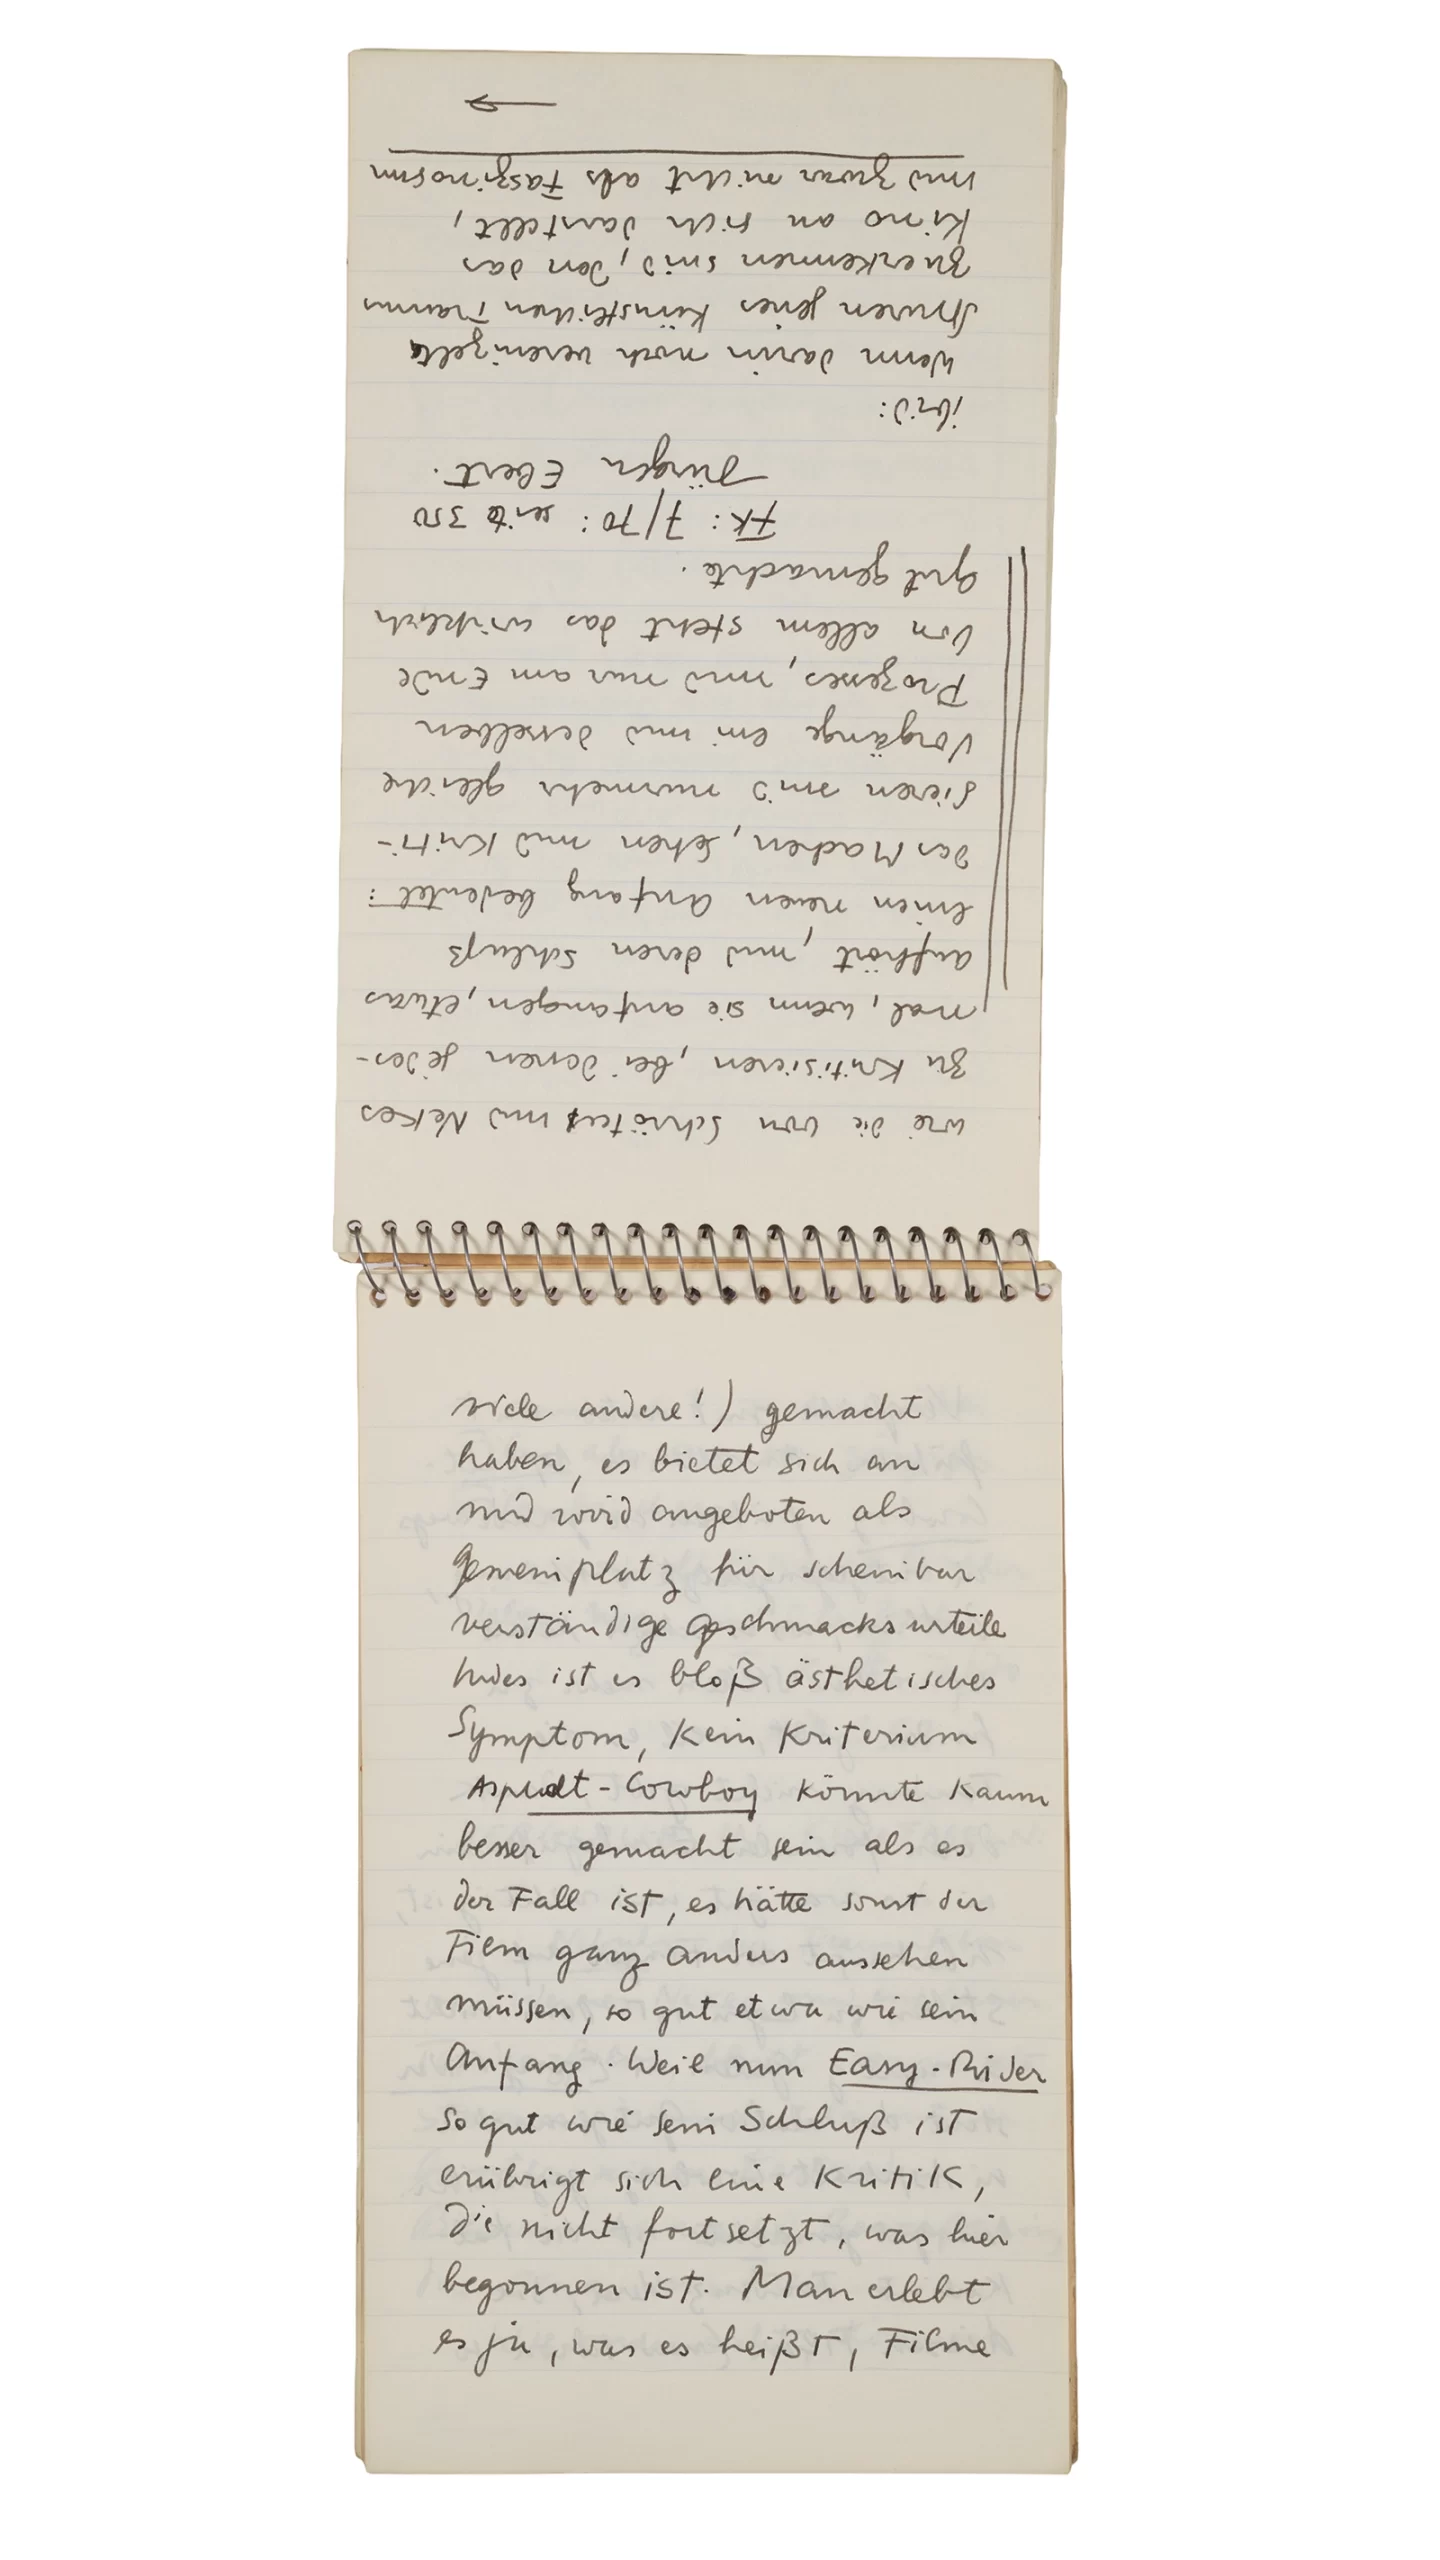 viele andere!) gemacht
haben, es bietet sich an
und wird angeboten als
Gemeinplatz für scheinbar
verständige Geschmacksurteile
Indes ist es bloß ästhetisches
Symptom, kein Kriterium
Asphalt-Cowboy könnte kaum
besser gemacht sein als es
der Fall ist, es hätte sonst der
Film ganz anders aussehen
müssen, so gut etwa wie sein
Anfang. Weil nun Easy-Rider
so gut wie sein Schluß ist
erübrigt sich eine Kritik,
die nicht fortsetzt, was hier
begonnen ist. Man erlebt
es ja, was es heißt, Filme
wie die von Schröter und Nekes
zu kritisieren, bei denen jedes-
mal, wenn sie anfangen, etwas
aufhört, und deren Schluß
einen neuen Anfang bedeutet:
das Machen, Sehen und Kriti-
sieren sind nunmehr gleiche
Vorgänge ein und desselben
Prozesses, und nur am Ende
von allem steht das wirklich
gut gemachte.
FK: 7/70: seite 350
Jürgen Ebert.
ibid:
Wenn darin noch vereinzelte
Spuren jenes künstlichen Traums
zu erkennen sind, den das
Kino an sich darstellt,
und zwar nicht als Faszinosum